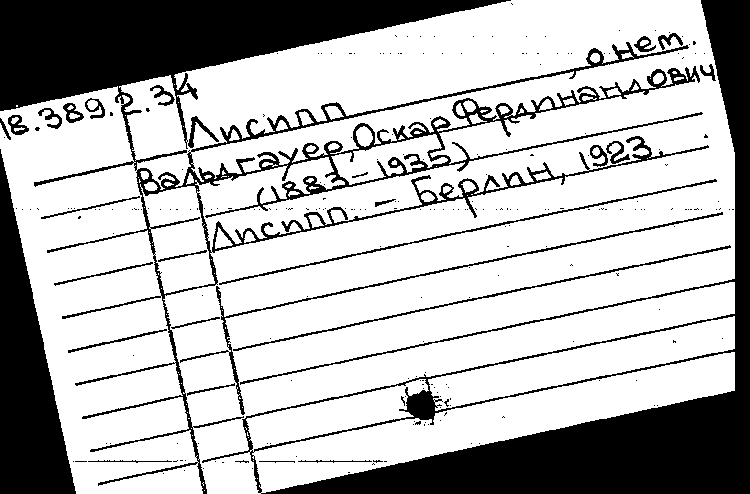 18.389.2.34
Лисипп, о нем.
Вальдгауер, Оскар Фердинандович
(1883-1935)
Лисипп. – Берлин, 1923.